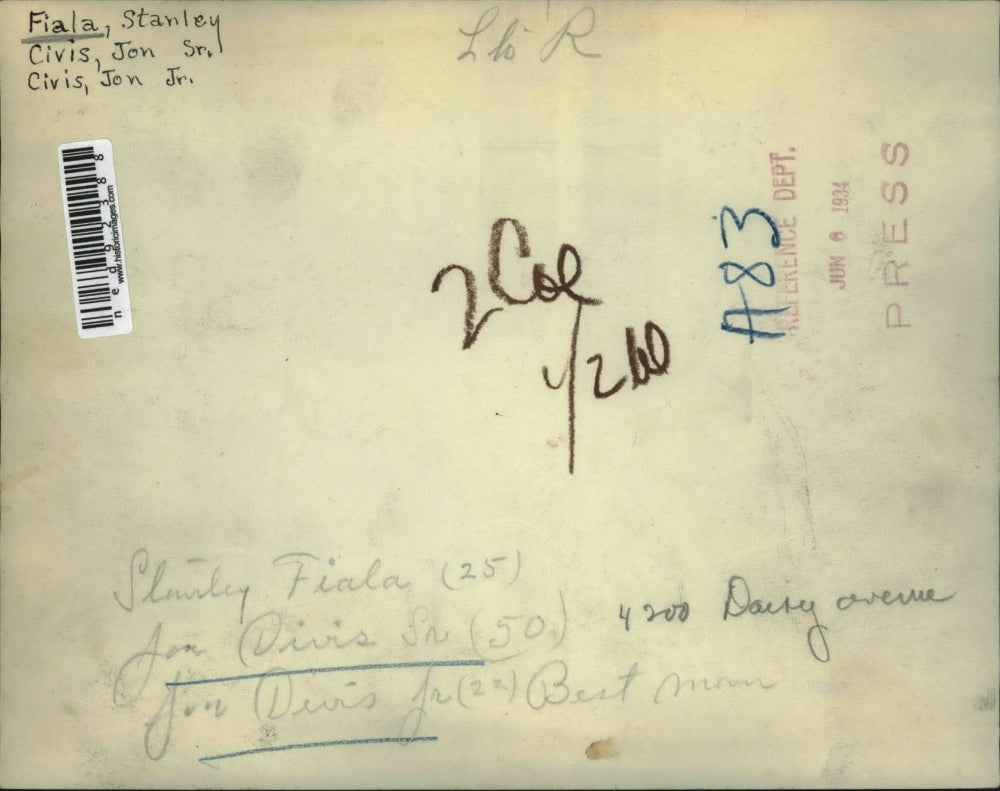 Fiala, Stanley
Civis, Jon Sr.
Civis, Jon Jr.
L to R
ned92388
www.historicimages.com
2 Col
A83
REFERENCE DEPT.
JUN 6 1934
PRESS
Stanley Fiala (25)
Jon Divis Sr (50)
4200 Daisy avenue
Jon Divis Jr (22) Best man